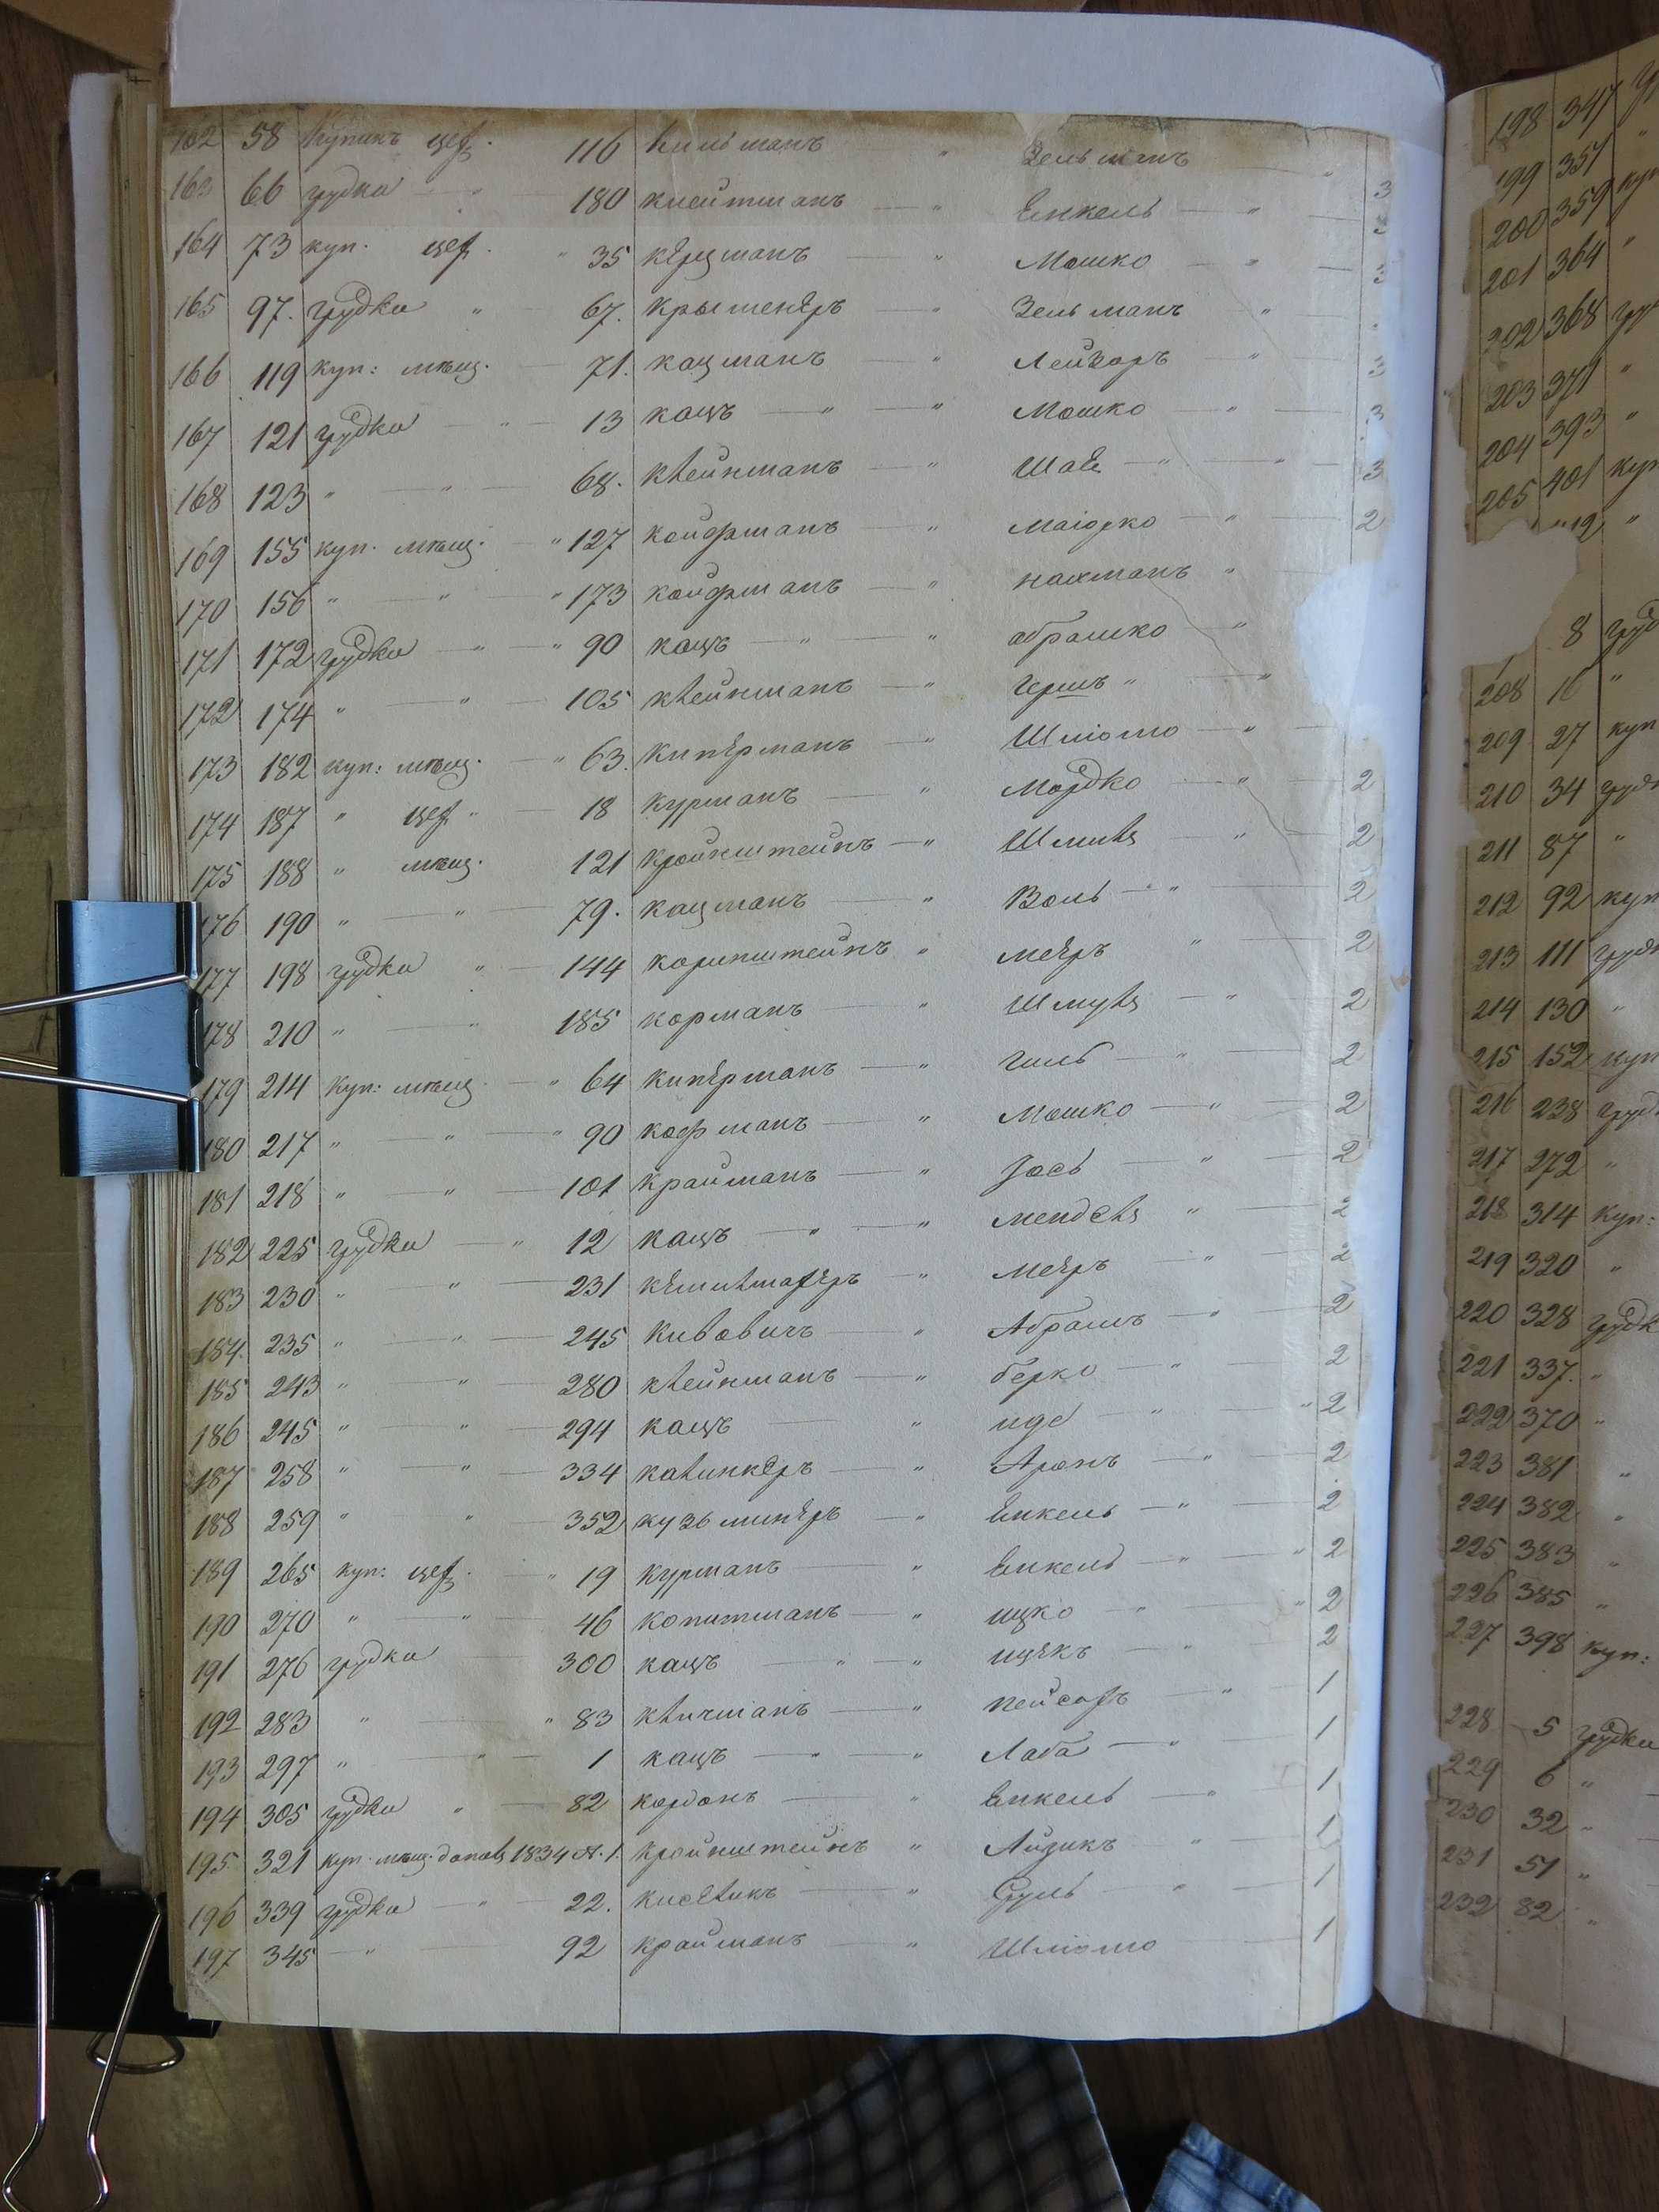 162 58 Купинъ цеф. 116 Кильманъ " Зельманъ " 3
163 66 грудка " 180 клейтманъ " Енкель " 3
164 73 куп. цеф. " 35 керцманъ " Мошко " 3
165 97. грудка " 67. крыменеръ " Зельманъ "
166 119 куп: мѣщ. 71. кацманъ " Лейзоръ " 3
167 121 грудка " 13 кацъ " " Мошко " 3
168 123 " " 68. клейнманъ " Шае " " 3
169 155 куп. мѣщ. " 127 койфманъ " Маіорко " 2
170 156 " " " 173 койфманъ " нахманъ "
171 172 грудка " " 90 кацъ " " абрашко "
172 174 " " 105 клейнманъ " герша " "
173 182 куп: мѣщ. " 63. киперманъ " Шліомо "
174 187 " цеф. " 18 курманъ " Мордко " 2
175 188 " мѣщ. 121 кройнштейнъ " Шмилъ " 2
176 190 " " 79. кацманъ " Воль " " 2
177 198 грудка " 144 коринштейнъ " мееръ " 2
178 210 " " 185 корманъ " Шмуль " 2
179 214 Куп: мѣщ. " 64 киперманъ " гиль " 2
180 217 " " " 90 кофманъ " Мошко " 2
181 218 " " 101 крайманъ " Іось " 2
182 225 грудка " 12 кацъ " " мендель " 2
183 230 " " 231 " мееръ " 2
184. 235 " " 245 Кивовичъ " Абрамъ " 2
185 243 " " 280 клейнманъ " берко " 2
186 245 " " 294 кацъ " иде " " 2
187 258 " " 334 калинкеръ " Аронъ " 2
188 259 " " 352 кузьминеръ " Енкель " 2
189 265 куп: цеф. " 19 курманъ " Енкель " " 2
190 270 " " 46 копитманъ " ицко " " 2
191 276 грудка 300 кацъ " " ицекъ " 2
192 283 " " 83 кличманъ " пейсахъ " 1
193 297 " " 1 кацъ " " Лаба " 1
194 305 грудка " 82 кордонъ " Енкель " 1
195 321 куп. мѣщ. 1834 N. 1. кройнштейнъ " Айзикъ " 1
196 339 грудка " 22. киселикъ " Сруль " 1
197 345 " 92 крайманъ " Шліомо 1
198 347
199 357 "
200 359 куп
201 364 "
202 368
203 371 "
204 393 "
205 401 куп
8
208 "
209 27 куп
210 34
211 87 "
212 92 куп
213 111
214 130 "
215 152 куп
216 238
217 272 "
218 314 Куп:
219 320 "
220 328
221 337. "
222 370 "
223 381 "
224 382 "
225 383 "
226 385 "
227 398 куп:
228 5 грудка
229 6 "
230 32 "
231 51 "
232 82 "